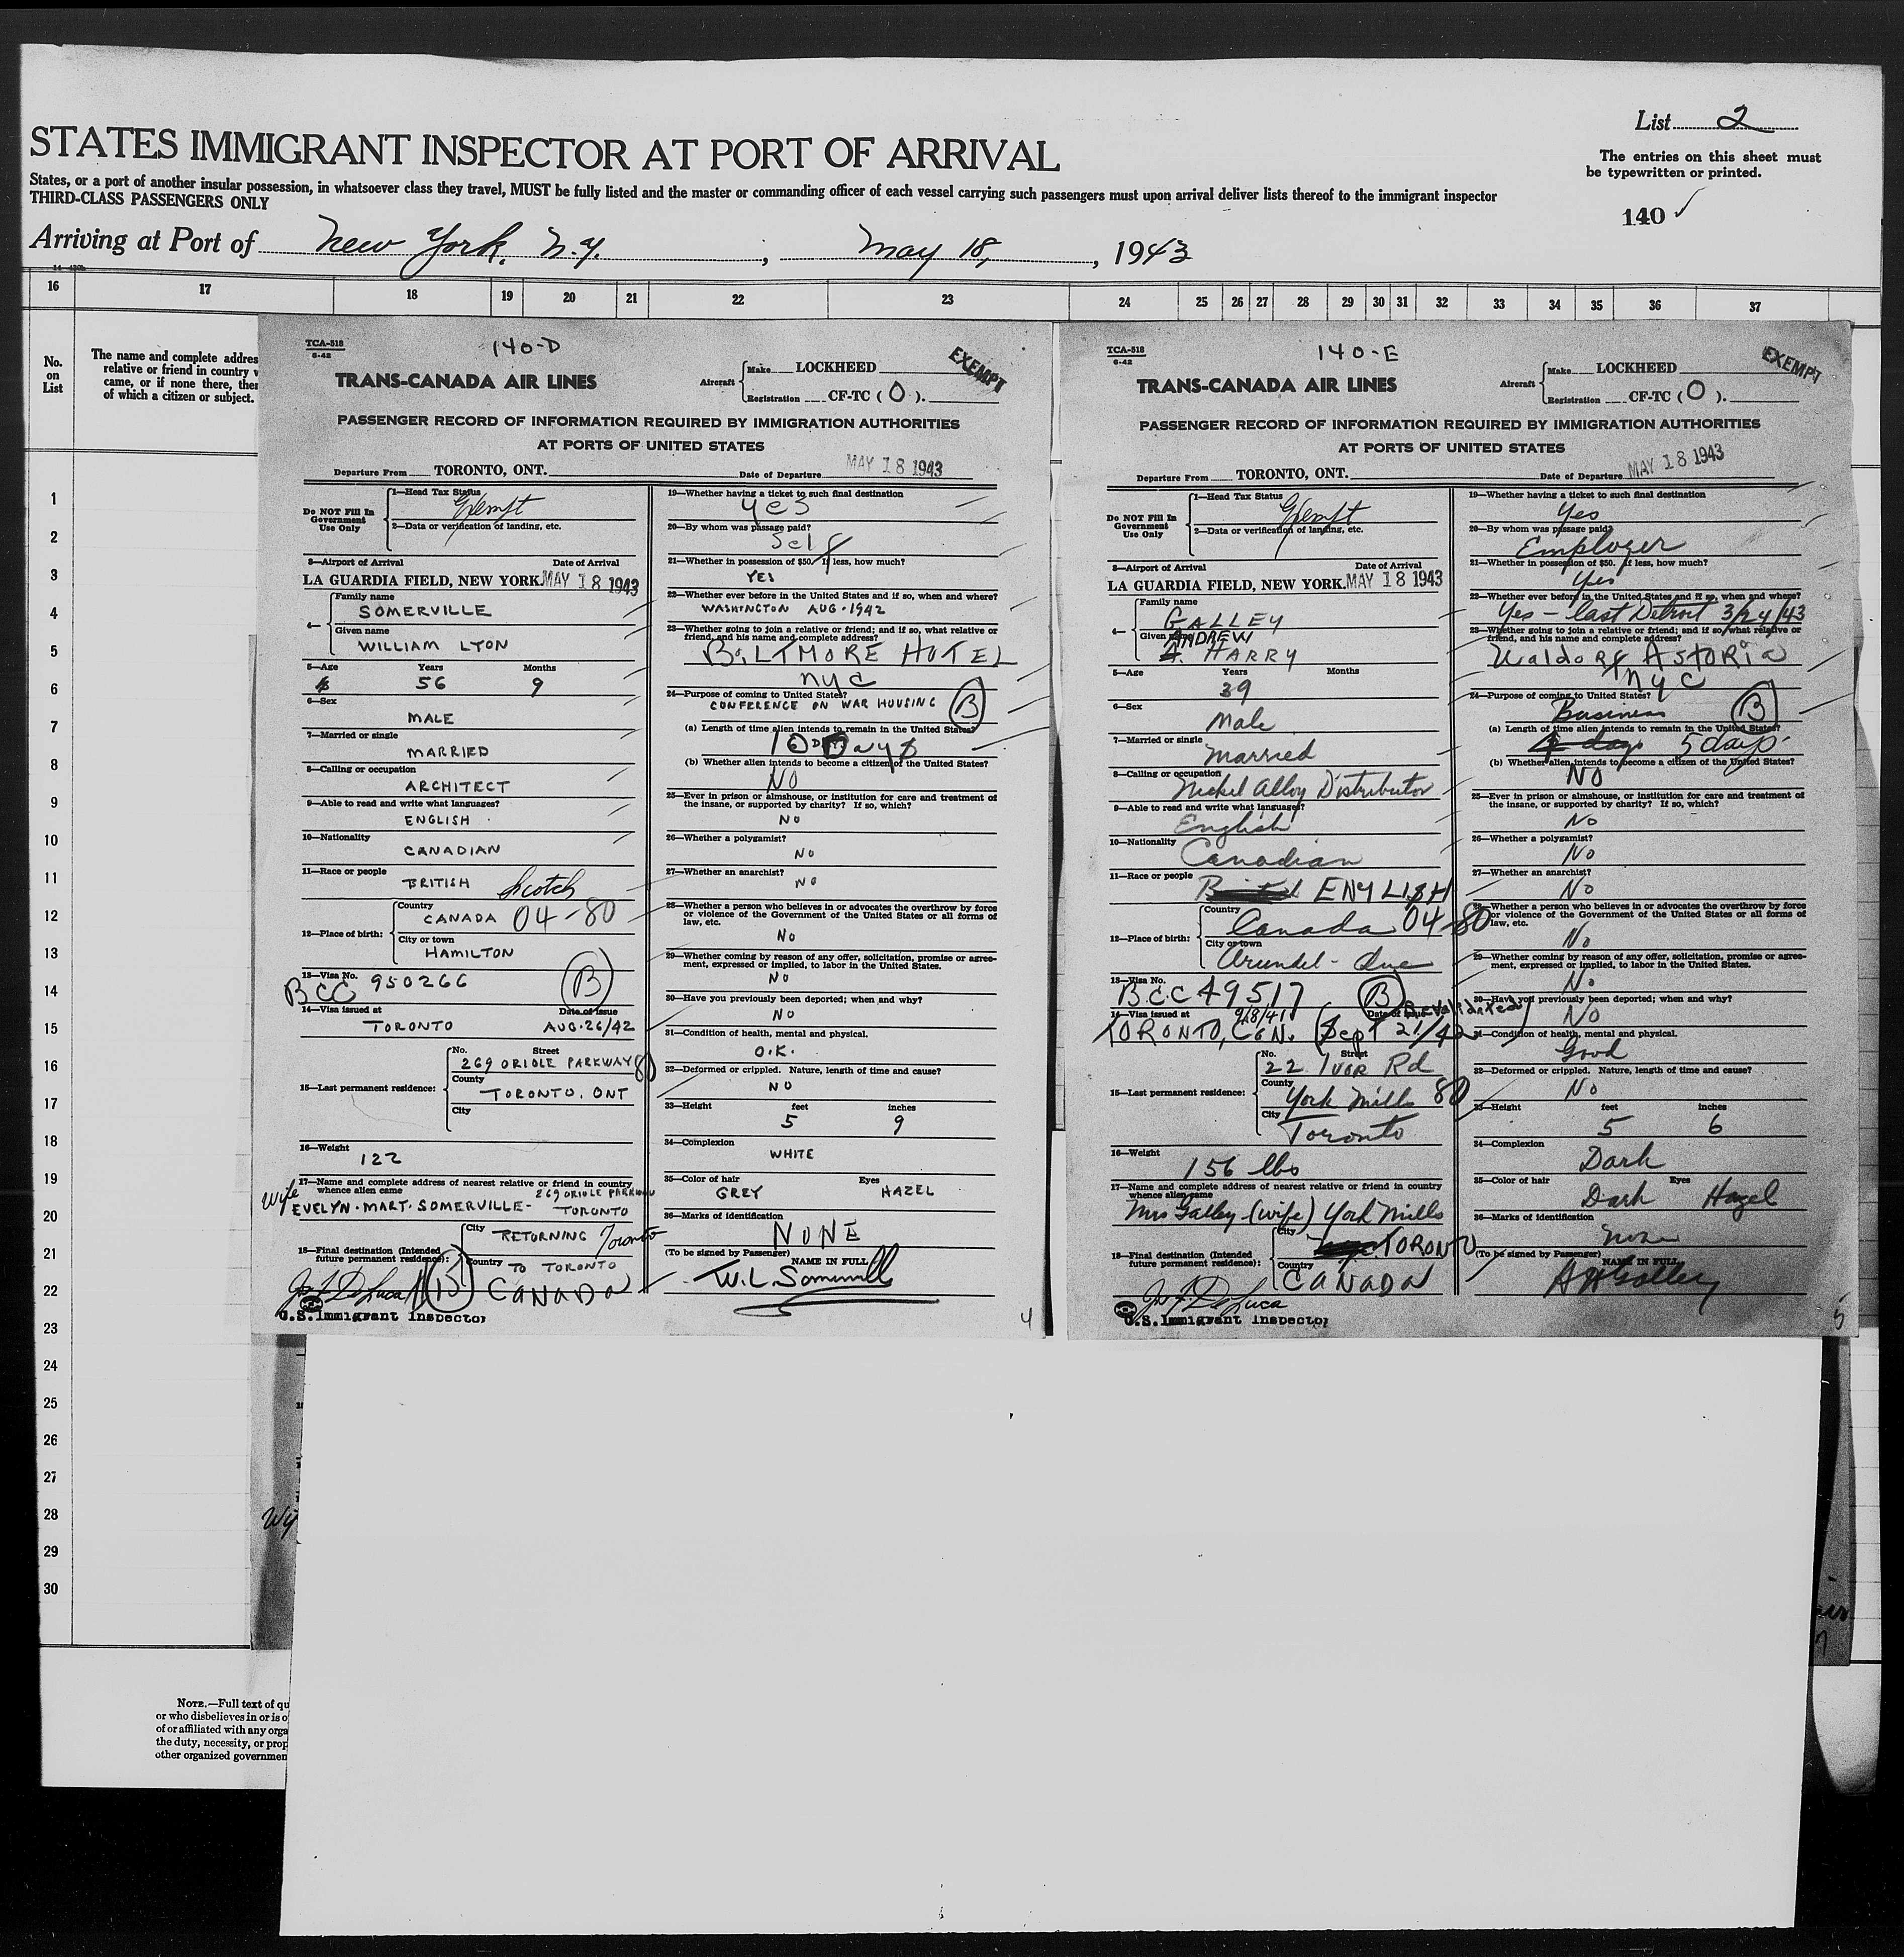 List 2
STATES IMMIGRANT INSPECTOR AT PORT OF ARRIVAL
The entries on this sheet must
be typewritten or printed.
States, or a port of another insular possession, in whatsoever class they travel, MUST be fully listed and the master or commanding officer of each vessel carrying such passengers must upon arrival deliver lists thereof to the immigrant inspector
THIRD-CLASS PASSENGERS ONLY
140 ✓
Arriving at Port of New York, N.Y., May 18, 1943
16 17 18 19 20 21 22 23 24 25 26 27 28 29 30 31 32 33 34 35 36 37
No.
on
List
The name and complete addres
relative or friend in country w
came, or if none there, then
of which a citizen or subject.
1
2
3
4
5
6
7
8
9
10
11
12
13
14
15
16
17
18
19
20
21
22
23
24
25
26
27
28
29
30
NOTE.—Full text of qu
or who disbelieves in or is o
of or affiliated with any orga
the duty, necessity, or prop
other organized governmen
TCA-518
6-42
140-D
EXEMPT
TRANS-CANADA AIR LINES
Aircraft
Make LOCKHEED
Registration CF-TC ( O ).
PASSENGER RECORD OF INFORMATION REQUIRED BY IMMIGRATION AUTHORITIES
AT PORTS OF UNITED STATES
Departure From TORONTO, ONT. Date of Departure MAY 18 1943
Do NOT Fill In
Government
Use Only
1—Head Tax Status
Exempt
2—Data or verification of landing, etc.
3—Airport of Arrival Date of Arrival
LA GUARDIA FIELD, NEW YORK. MAY 18 1943
4—
Family name
SOMERVILLE
Given name
WILLIAM LYON
5—Age Years Months
56 9
6—Sex
MALE
7—Married or single
MARRIED
8—Calling or occupation
ARCHITECT
9—Able to read and write what languages?
ENGLISH
10—Nationality
CANADIAN
11—Race or people
BRITISH Scotch
12—Place of birth:
Country
CANADA 04-80
City or town
HAMILTON
13—Visa No. 950266
BCC (B)
14—Visa issued at Date of issue
TORONTO AUG. 26/42
15—Last permanent residence:
No. Street
269 ORIOLE PARKWAY 80
County
TORONTO. ONT
City
16—Weight
122
17—Name and complete address of nearest relative or friend in country
whence alien came 269 ORIOLE PARKWAY
Wife
EVELYN. MART. SOMERVILLE- TORONTO
18—Final destination (Intended
future permanent residence):
City
RETURNING Toronto
Country TO TORONTO
CANADA
U.S. Immigrant Inspector
19—Whether having a ticket to such final destination
yes
20—By whom was passage paid?
Self
21—Whether in possession of $50. If less, how much?
YES
22—Whether ever before in the United States and if so, when and where?
WASHINGTON AUG. 1942
23—Whether going to join a relative or friend; and if so, what relative or
friend, and his name and complete address?
BILTMORE HOTEL
NYC
24—Purpose of coming to United States?
CONFERENCE ON WAR HOUSING (B)
(a) Length of time alien intends to remain in the United States?
10 Days
(b) Whether alien intends to become a citizen of the United States?
NO
25—Ever in prison or almshouse, or institution for care and treatment of
the insane, or supported by charity? If so, which?
NO
26—Whether a polygamist?
NO
27—Whether an anarchist?
NO
28—Whether a person who believes in or advocates the overthrow by force
or violence of the Government of the United States or all forms of
law, etc.
NO
29—Whether coming by reason of any offer, solicitation, promise or agree-
ment, expressed or implied, to labor in the United States.
NO
30—Have you previously been deported; when and why?
NO
31—Condition of health, mental and physical.
O.K.
32—Deformed or crippled. Nature, length of time and cause?
NO
33—Height feet inches
5 9
34—Complexion
WHITE
35—Color of hair Eyes
GREY HAZEL
36—Marks of identification
NONE
(To be signed by Passenger) NAME IN FULL
W.L. Somerville
4
TCA-518
6-42
140-E
EXEMPT
TRANS-CANADA AIR LINES
Aircraft
Make LOCKHEED
Registration CF-TC ( O ).
PASSENGER RECORD OF INFORMATION REQUIRED BY IMMIGRATION AUTHORITIES
AT PORTS OF UNITED STATES
Departure From TORONTO, ONT. Date of Departure MAY 18 1943
Do NOT Fill In
Government
Use Only
1—Head Tax Status
Exempt
2—Data or verification of landing, etc.
3—Airport of Arrival Date of Arrival
LA GUARDIA FIELD, NEW YORK. MAY 18 1943
4—
Family name
GALLEY
Given name ANDREW
A. HARRY
5—Age Years Months
39
6—Sex
Male
7—Married or single
Married
8—Calling or occupation
Nickel Alloy Distributor
9—Able to read and write what languages?
English
10—Nationality
Canadian
11—Race or people
ENGLISH
12—Place of birth:
Country
Canada 04-80
City or town
Arundel - Que
13—Visa No.
B.C.C 49517 (B) Revalidated
14—Visa issued at 9/8/41 Date of issue
TORONTO, CAN. (Sept 21/42)
15—Last permanent residence:
No. Street
22 Ivor Rd
County
York Mills 80
City
Toronto
16—Weight
156 lbs
17—Name and complete address of nearest relative or friend in country
whence alien came
Mrs Galley (wife) York Mills
18—Final destination (Intended
future permanent residence):
City
TORONTO
Country
CANADA
U.S. Immigrant Inspector
19—Whether having a ticket to such final destination
Yes
20—By whom was passage paid?
Employer
21—Whether in possession of $50. If less, how much?
Yes
22—Whether ever before in the United States and if so, when and where?
Yes - last Detroit 3/24/43
23—Whether going to join a relative or friend; and if so, what relative or
friend, and his name and complete address?
Waldorf Astoria
NYC
24—Purpose of coming to United States?
Business (B)
(a) Length of time alien intends to remain in the United States?
4 days 5 days
(b) Whether alien intends to become a citizen of the United States?
NO
25—Ever in prison or almshouse, or institution for care and treatment of
the insane, or supported by charity? If so, which?
No
26—Whether a polygamist?
No
27—Whether an anarchist?
No
28—Whether a person who believes in or advocates the overthrow by force
or violence of the Government of the United States or all forms of
law, etc.
No
29—Whether coming by reason of any offer, solicitation, promise or agree-
ment, expressed or implied, to labor in the United States.
No
30—Have you previously been deported; when and why?
No
31—Condition of health, mental and physical.
Good
32—Deformed or crippled. Nature, length of time and cause?
No
33—Height feet inches
5 6
34—Complexion
Dark
35—Color of hair Eyes
Dark Hazel
36—Marks of identification
None
(To be signed by Passenger) NAME IN FULL
A H Galley
5